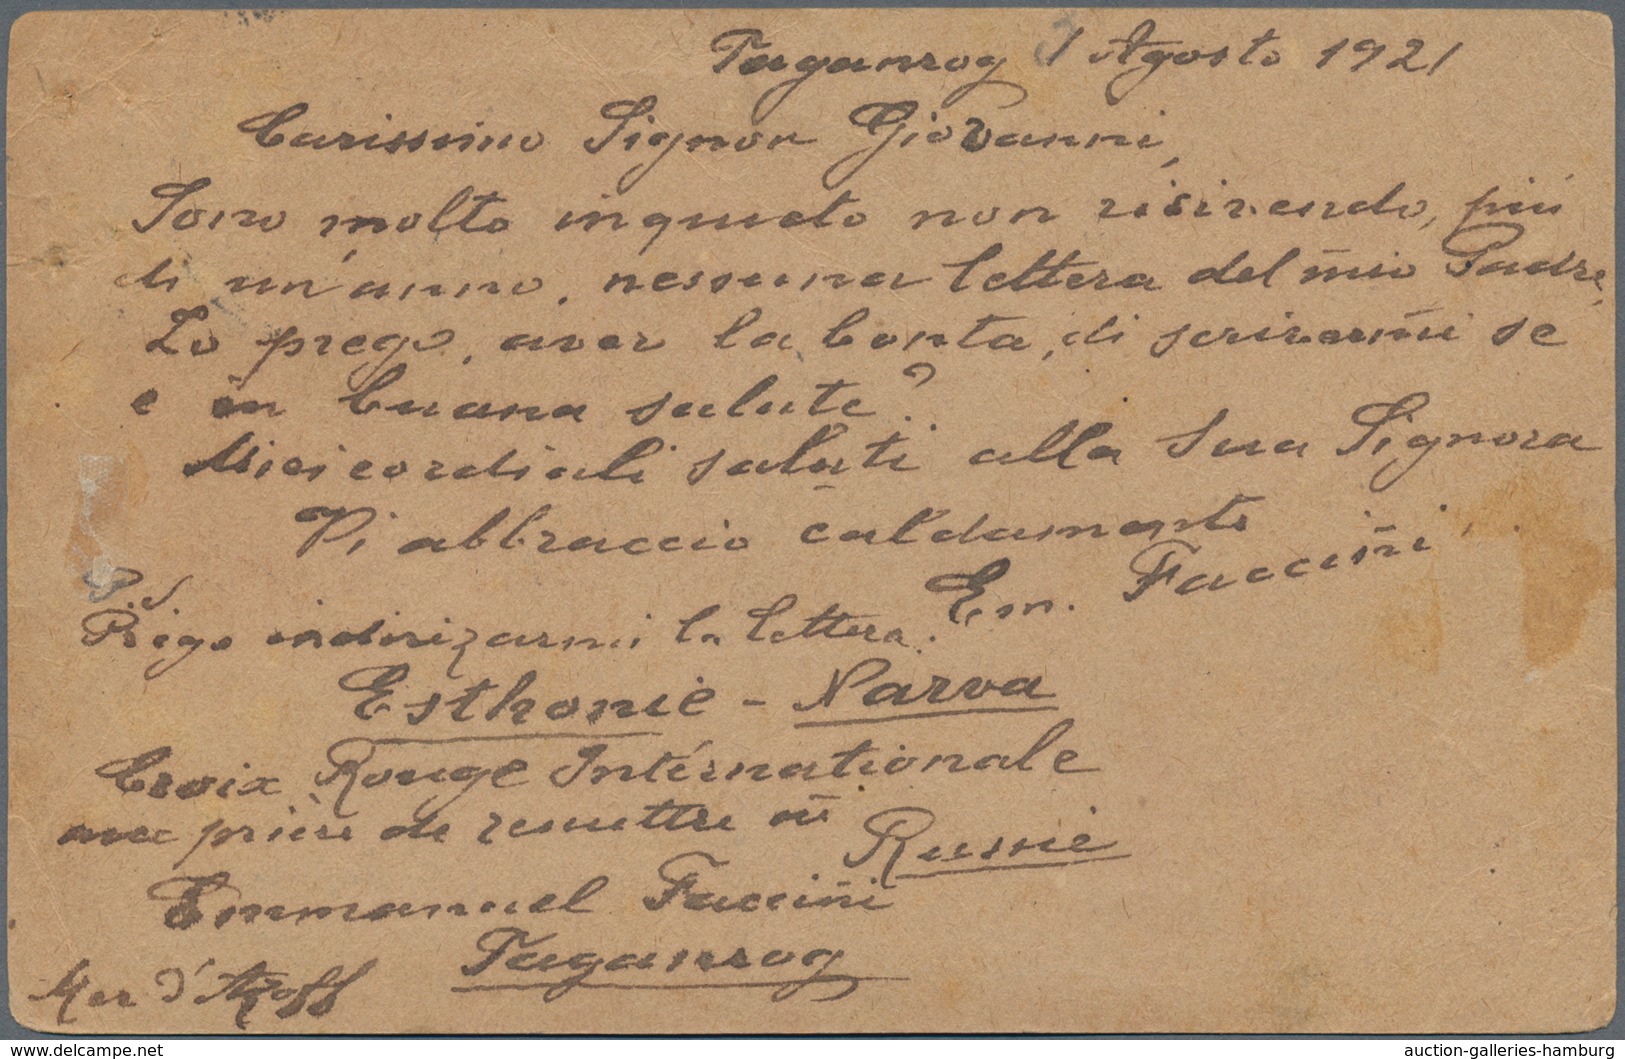 Taganrog 1 Agosto 1921
Carissimo Signor Giovanni,
Sono molto inquieto non ricivendo, più
di un'anno, nessuna lettera del mio Padre,
Lo prego, aver la bonta, di scrivermi se
e in buana salute?
Miei cordiali saluti alla Sua Signora
Vi abbraccio caldamente
Em. Faccini
P.S
Prego indirizarmi la lettera:
Esthonie - Narva
Croix Rouge Internationale
avec prière de remettre en
Russie
Emmanuel Faccini
Taganrog
Mer d'Azoff
auction-galleries-hamburg
www.delcampe.net